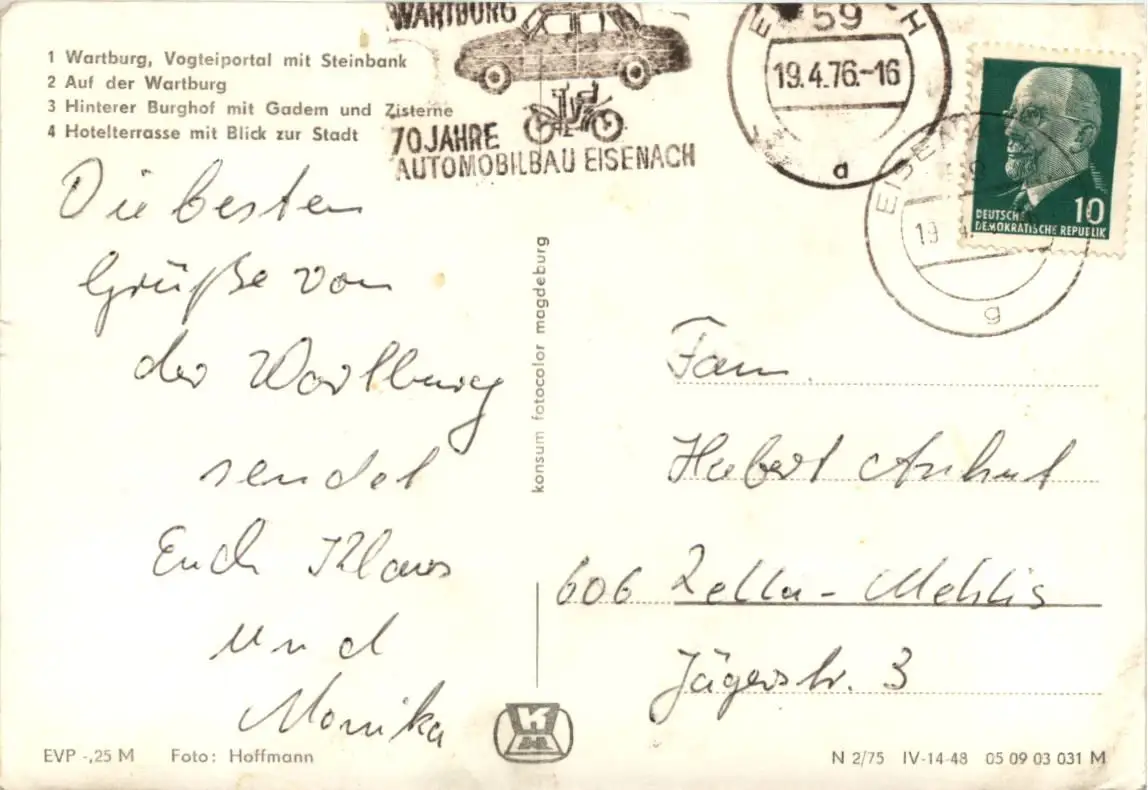 1 Wartburg, Vogteiportal mit Steinbank
2 Auf der Wartburg
3 Hinterer Burghof mit Gadem und Zisterne
4 Hotelterrasse mit Blick zur Stadt
WARTBURG
70 JAHRE
AUTOMOBILBAU EISENACH
59
19.4.76.-16
a
EISENA
19
g
10
DEUTSCHE
DEMOKRATISCHE REPUBLIK
Die besten
Grüße von
der Wartburg
sendet
Euch Klaus
und
Monika
konsum fotocolor magdeburg
Fam.
Hubert
606 Zella-Mehlis
Jägerstr. 3
EVP -,25 M Foto: Hoffmann
N 2/75 IV-14-48 05 09 03 031 M